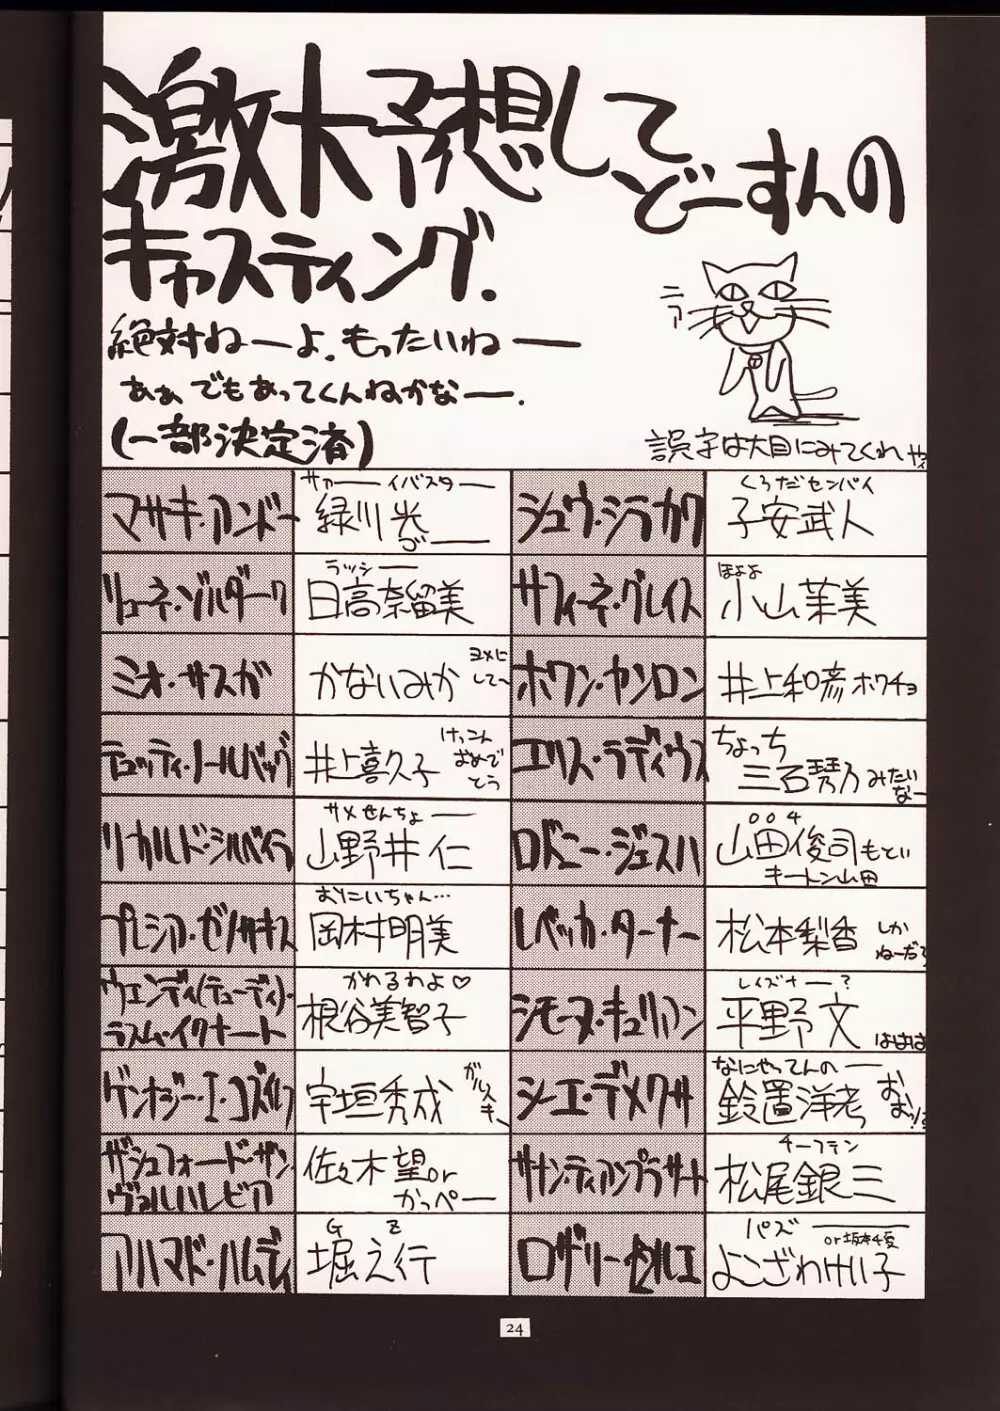 激大予想してどーすんの
キャスティング.
絶対ねーよ。もったいねー
あぁ、でもあってくんねぇかなー.
(一部決定済)
ニァ
誤字は大目にみてくれや
マサキ・アンドー
サァーイバスター
緑川光
ゴー
シュウ・シラカワ
くろだセンパイ
子安武人
リューネ・ゾルダーク
ラッシー
日高奈留美
サフィーネ・グレイス
ほよよ
小山茉美
ミオ・サスガ
かないみか
ヨメに
して〜
ホワン・ヤンロン
井上和彦 ホワチョ
テュッティ・ノールバック
井上喜久子
けっこん
おめで
とう
エリス・ラディウス
ちょっち
三石琴乃 みたい
なー
リカルド・シルベイラ
サメせんちょー
山野井仁
ロドニー・ジェスハ
004
山田俊司 もとい
キートン山田
プレシア・ゼノサキス
おにいちゃん…
岡村明美
レベッカ・ターナー
松本梨香 しか
ねーだろ
ウェンディ(テューディ)・
ラスム・イクナート
かわるわよ♡
根谷美智子
シモーヌ・キュリアン
レイズナー?
平野文 ははは
ゲンナジー・I・コズイレフ
宇垣秀成
シーエ・デメクサ
なにやってんのー
鈴置洋孝
ザシュフォード・ザン・
ヴァルハレビア
佐々木望or
かっぺー
サナン・ティアンプラサート
チーフテン
松尾銀三
アハマド・ハムディ
G Z
堀之行
ロザリー・セルエ
パズー
or坂本千夏
よこざわけい子
24